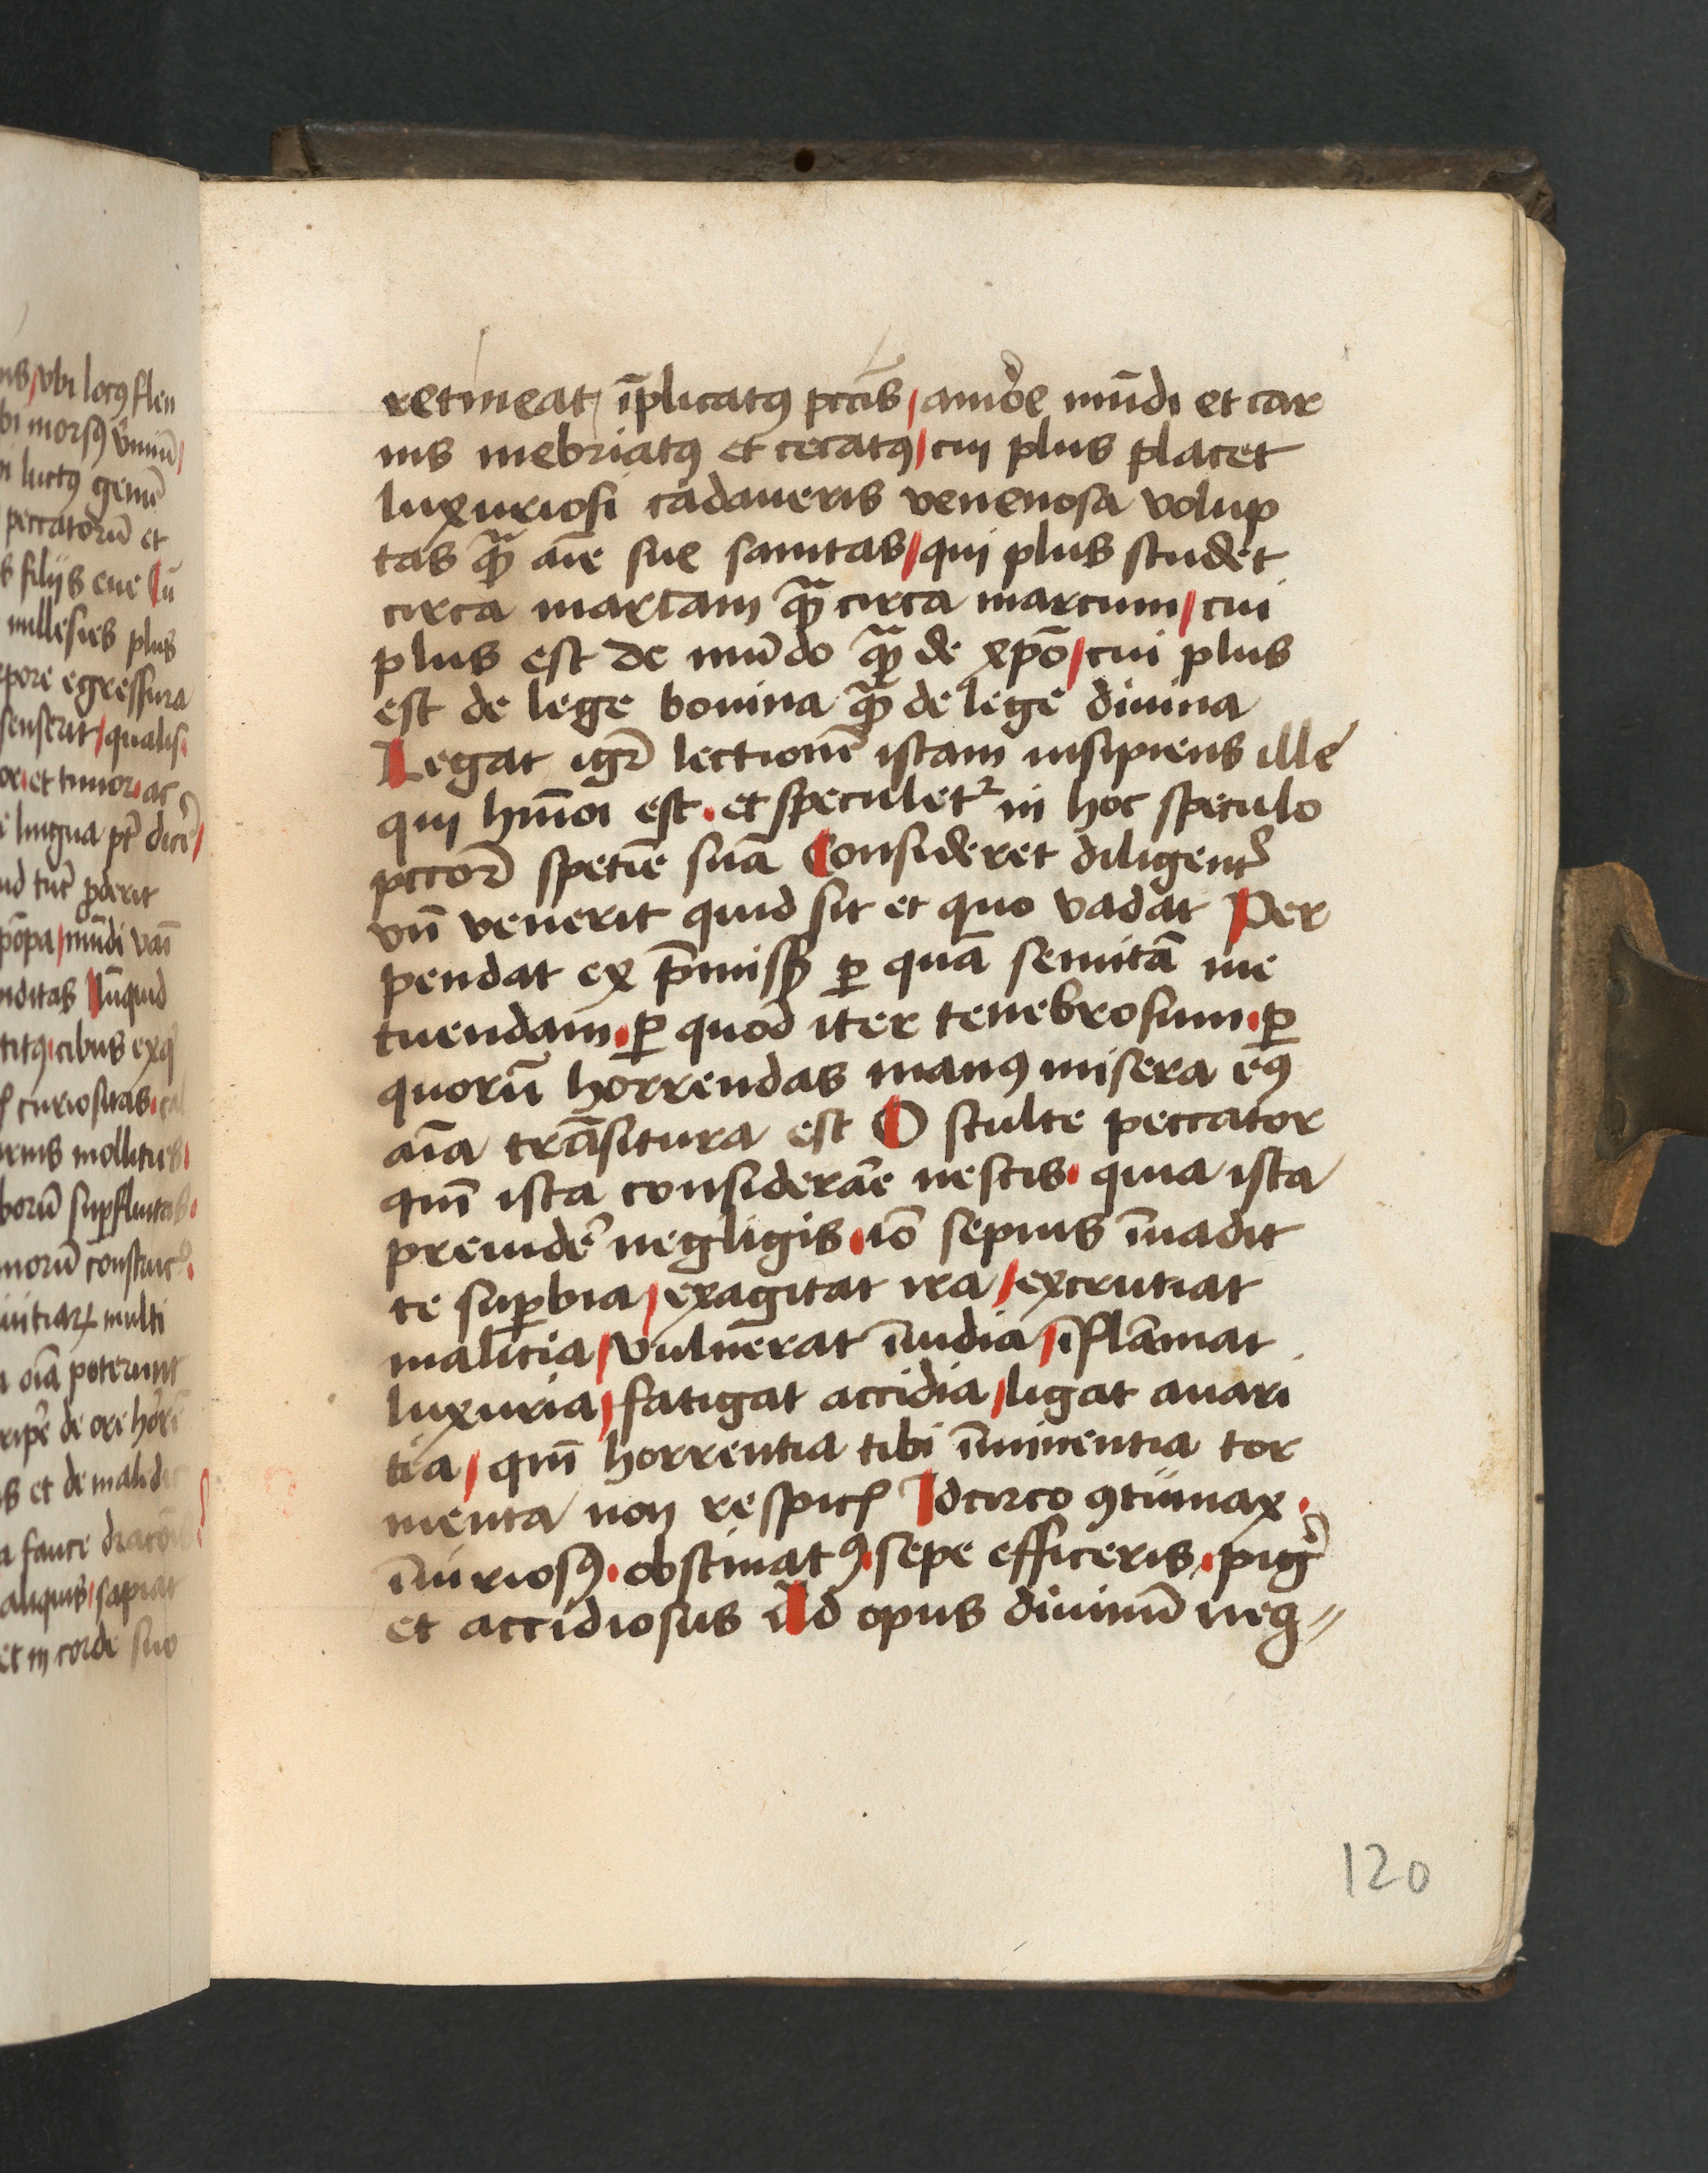 retineat / īplicatꝯ pctīs / amoꝛe mūdi et car
nis inebriatꝯ et cecatꝯ / cui plus placet
luxuriosi cadaueris venenosa volup
tas qᷓꝫ aīe sue sanitas / qui plus studet
circa martam qᷓꝫ circa marcum / cui
plus est de mūdo qᷓꝫ de xp̄o / cui plus
est de lege bouina qᷓꝫ de lege diuina
Legat igr̄ lectionē istam insipiens ille
qui hm̄oi est . et speculetᷣ in hoc speculo
pccoꝝ spetiē suā Consideret diligent̾
vn̄ venerit quid sit et quo vadat Per
pendat ex p̄missꝭ ꝑ quā semitā me
tuendam . ꝑ quod iter tenebrosum . ꝑ
quorū horrendas manꝯ misera eiꝯ
aīa trāsitura est O stulte peccator
qm̄ ista considerare nescis . quia ista
preuider̾ negligis . iō sepius īuadit
te suꝑbia / exagitat ira / excrutiat
malitia / vulnerat īuidia / īflāmat
luxuria / fatigat accidia / ligat auari
tia / qm̄ horrentia tibi īminentia tor
menta non respicꝭ Idcirco ꝯtumax .
īiuriosꝯ . obstinatꝯ . sepe efficeris . pig̾
et accidiosus Ad opus diuinū neg〃
120